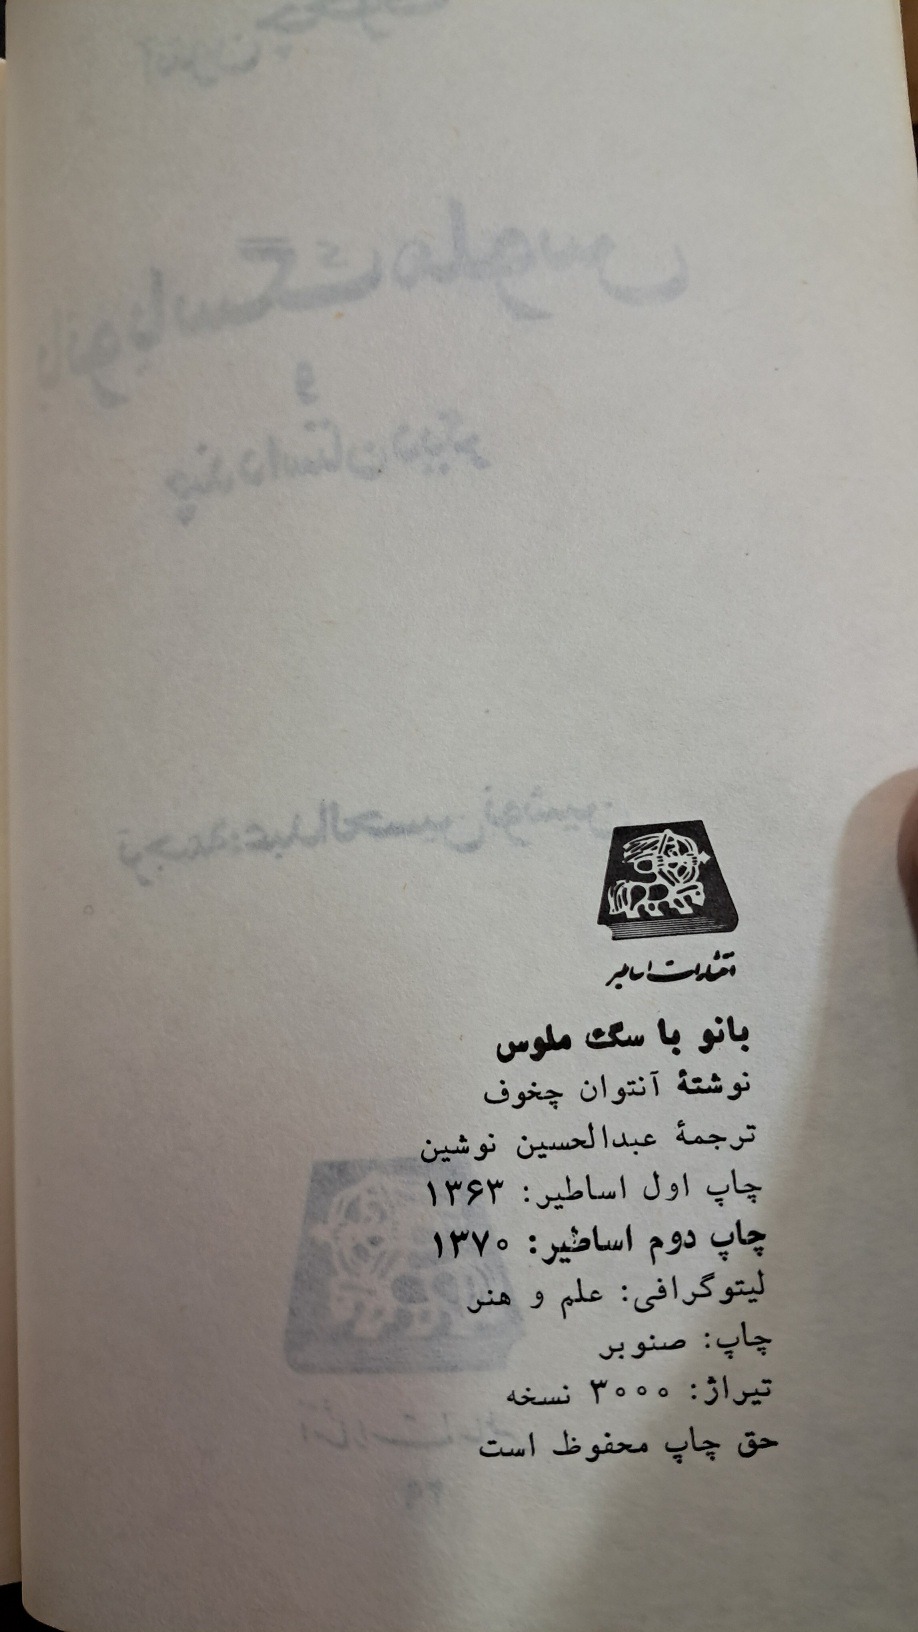 انتشارات اساطیر
بانو با سگ ملوس
نوشتهٔ آنتوان چخوف
ترجمهٔ عبدالحسین نوشین
چاپ اول اساطیر: ۱۳۶۳
چاپ دوم اساطیر: ۱۳۷۰
لیتوگرافی: علم و هنر
چاپ: صنوبر
تیراژ: ۳۰۰۰ نسخه
حق چاپ محفوظ است